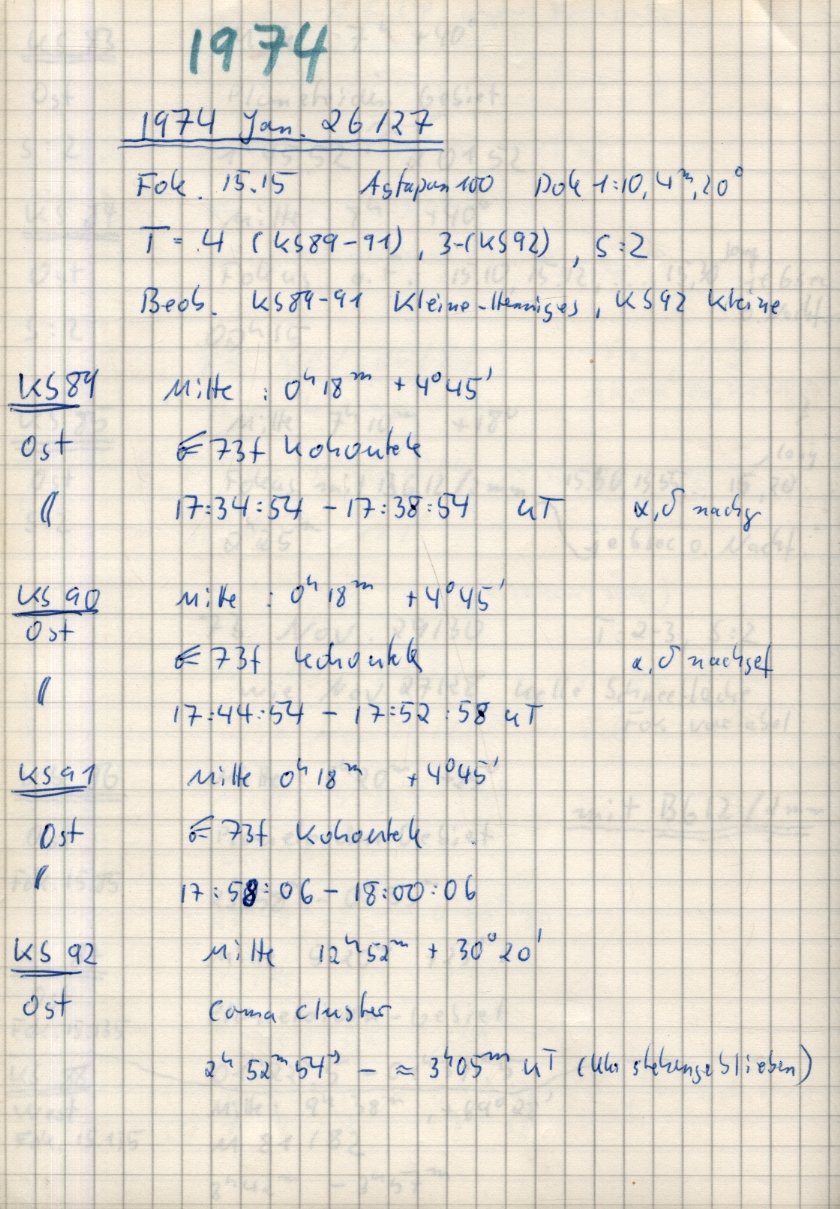 1974
1974 Jan. 26/27
Fok. 15.15 Astapan 100 Dok 1:10, 4m, 20°
T = 4 (KS89-91), 3-(KS92), S:2
Beob. KS89-91 Kleine-Henniges, KS92 Kleine
KS89 Mitte : 0h 18m +4°45'
Ost 73f Kohoutek
" 17:34:54 - 17:38:54 UT α, δ nachg
KS 90 Mitte : 0h 18m +4°45'
Ost
73f Kohoutek α, δ nachgef
"
17:44:54 - 17:52:58 UT
KS91 Mitte 0h 18m +4°45'
Ost 73f Kohoutek
" 17:58:06 - 18:00:06
KS 92 Mitte 12h 52m + 30°20'
Ost Coma cluster
2h 52m 54s - ≈ 3h 05m UT (Uhr stehengeblieben)